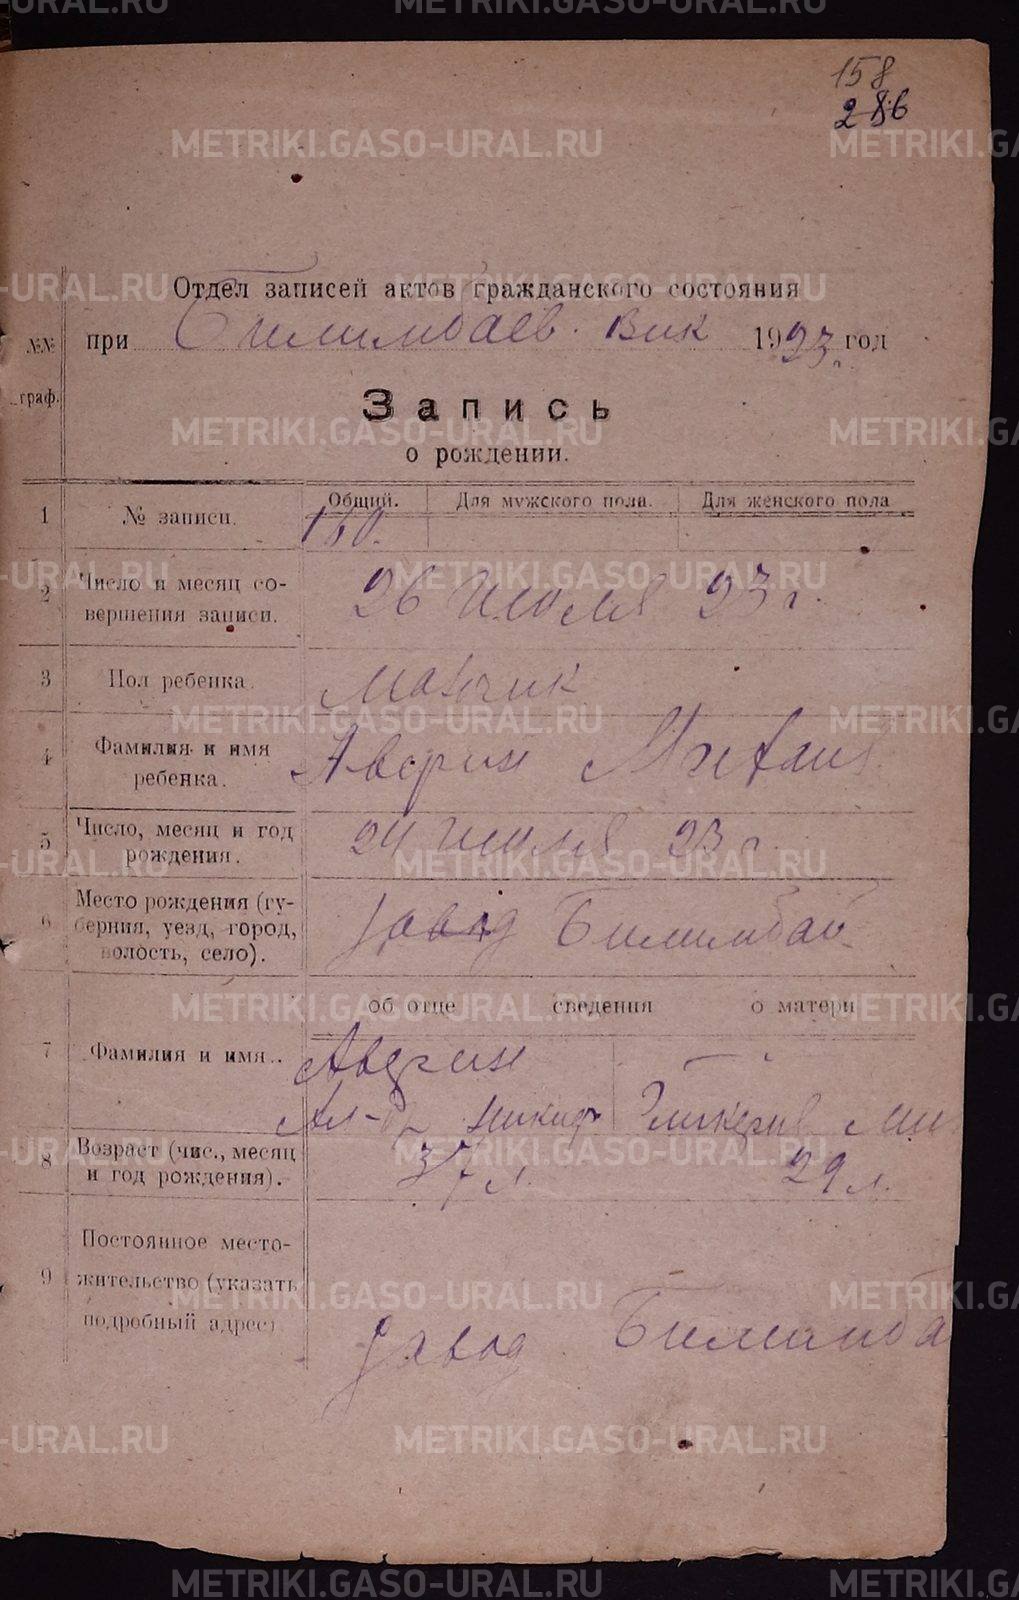 158
286
Отдел записей актов гражданского состояния
при Билимбаев. Вик 1923 год
№№ граф.
Запись
о рождении.
1 № записи. Общий. Для мужского пола. Для женского пола
160.
2 Число и месяц со-
вершения записи. 26 Июля 23 г.
3 Пол ребенка. Мальчик
4 Фамилия и имя
ребенка. Аверин Михаил
5 Число, месяц и год
рождения. 24 Июля 23 г.
6 Место рождения (гу-
берния, уезд, город,
волость, село). завод Билимбай
об отце сведения о матери
7 Фамилия и имя. Аверин
Никиф Гликерия Ми
8 Возраст (чис., месяц
и год рождения). 37 л. 29 л.
9 Постоянное место-
жительство (указать
подробный адрес)
завод Билимба
METRIKI.GASO-URAL.RU